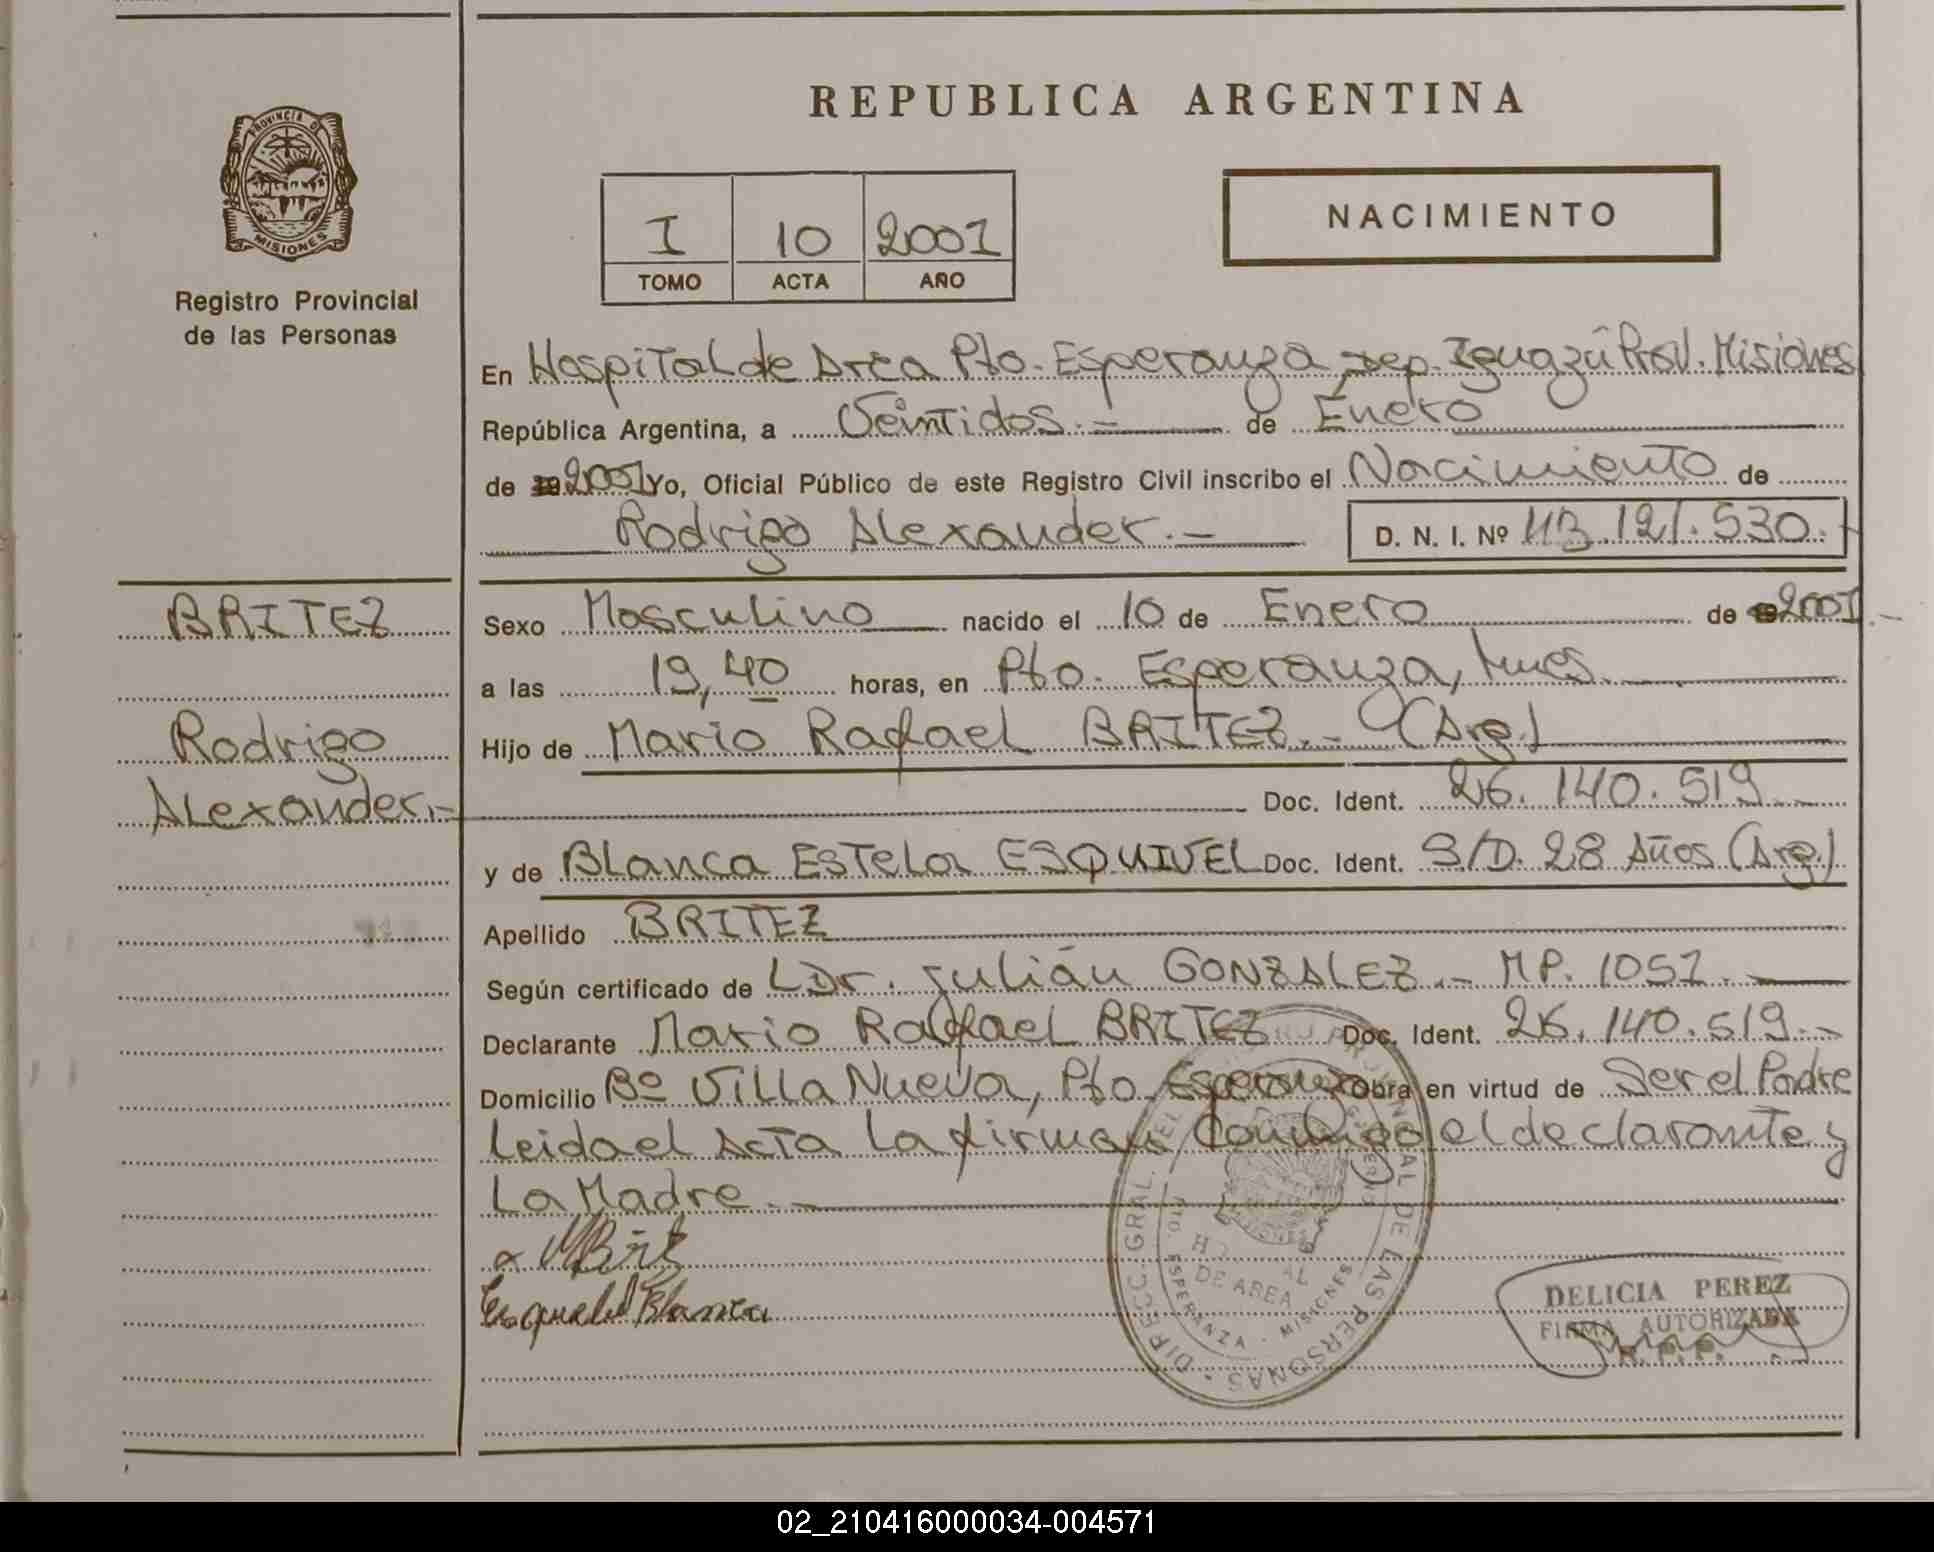 REPUBLICA ARGENTINA
PROVINCIA DE MISIONES
Registro Provincial
de las Personas
NACIMIENTO
I 10 2001
TOMO ACTA AÑO
En Hospital de Area Pto. Esperanza, Dep. Iguazú Prov. Misiones
República Argentina, a Veintidos.- de Enero
de 2001 Yo, Oficial Público de este Registro Civil inscribo el Nacimiento de
Rodrigo Alexander.- D. N. I. Nº 43.121.530.-
BRITEZ
Rodrigo
Alexander.-
Sexo Masculino nacido el 10 de Enero de 2001.-
a las 19,40 horas, en Pto. Esperanza, Mnes.
Hijo de Mario Rafael BRITEZ.- (Arg.)
Doc. Ident. 26.140.519.-
y de Blanca Estela ESQUIVEL Doc. Ident. S/D. 28 Años (Arg.)
Apellido BRITEZ
Según certificado de Dr. Julián GONZALEZ.- MP. 1051.
Declarante Mario Rafael BRITEZ Doc. Ident. 26.140.519.-
Domicilio Bº Villa Nueva, Pto. Esperanza Obra en virtud de Ser el Padre
Leida el Acta La firman Conmigo el declarante y
La Madre.
Blanca
DIRECC. GRAL. DEL REGISTRO PROVINCIAL DE LAS PERSONAS
DE AREA
PTO. ESPERANZA - MISIONES
DELICIA PEREZ
FIRMA AUTORIZADA
R. P. P.
02_210416000034-004571